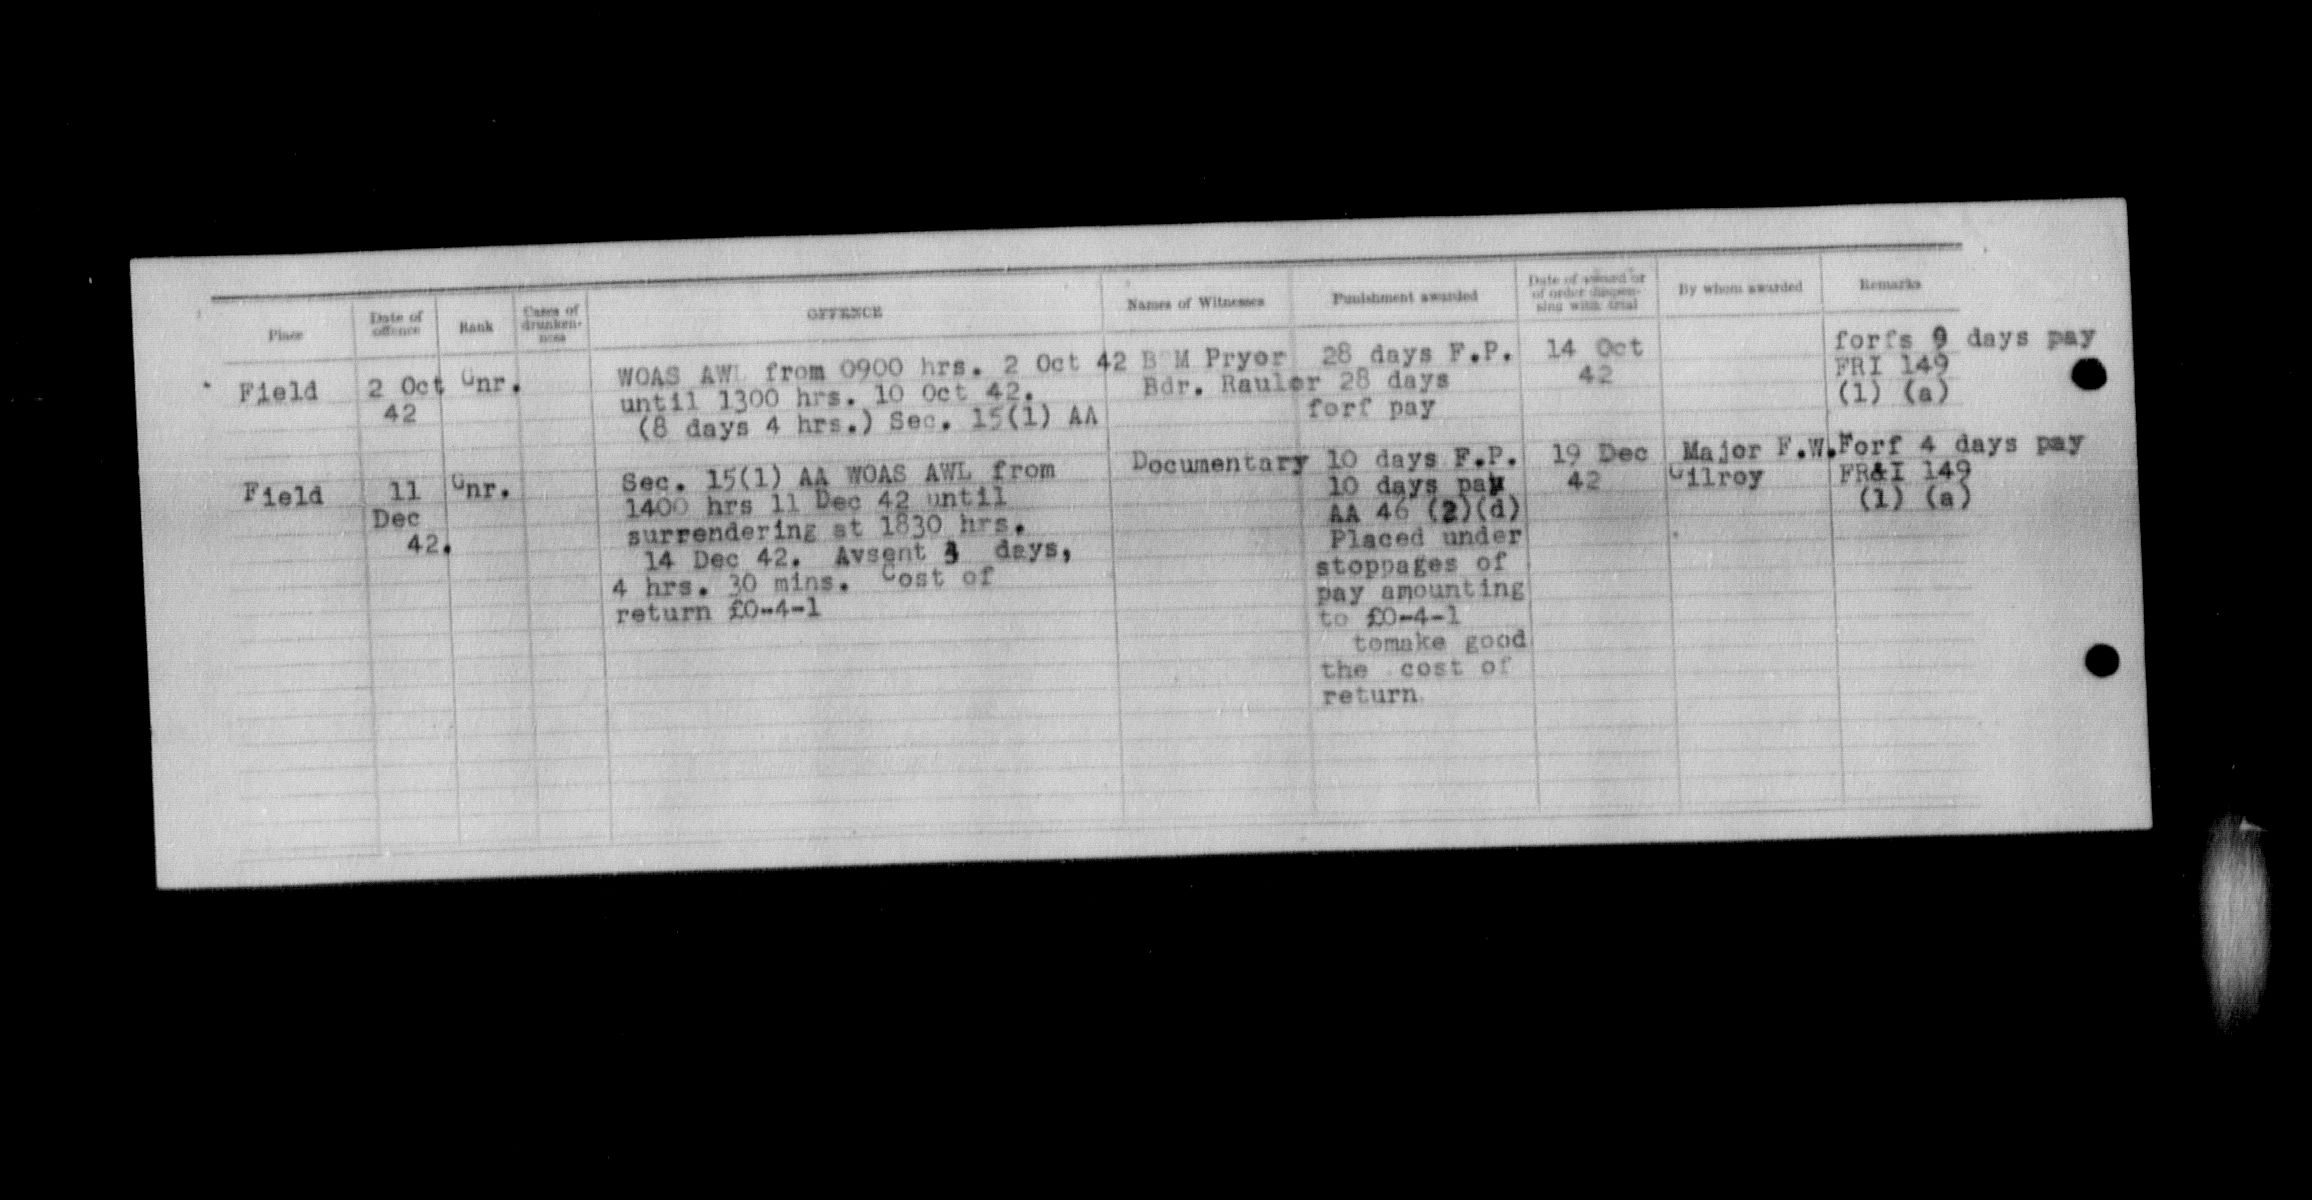 Place
Date of
offence
Rank
Cases of
drunken-
ness
OFFENCE
Names of Witnesses
Punishment awarded
Date of award or
of order dispen-
sing with trial
By whom awarded
Remarks
Field
2 Oct
42
Gnr.
WOAS AWL from 0900 hrs. 2 Oct 42
until 1300 hrs. 10 Oct 42.
(8 days 4 hrs.) Sec. 15(1) AA
B M Pryor
Bdr. Raulor
28 days F.P.
28 days
forf pay
14 Oct
42
forfs 9 days pay
FRI 149
(1) (a)
Field
11
Dec
42.
Gnr.
Sec. 15(1) AA WOAS AWL from
1400 hrs 11 Dec 42 until
surrendering at 1830 hrs.
14 Dec 42. Avsent 3 days,
4 hrs. 30 mins. Cost of
return £0-4-1
Documentary
10 days F.P.
10 days pay
AA 46 (2)(d)
Placed under
stoppages of
pay amounting
to £0-4-1
tomake good
the cost of
return
19 Dec
42
Major F.W.
Gilroy
Forf 4 days pay
FR&I 149
(1) (a)